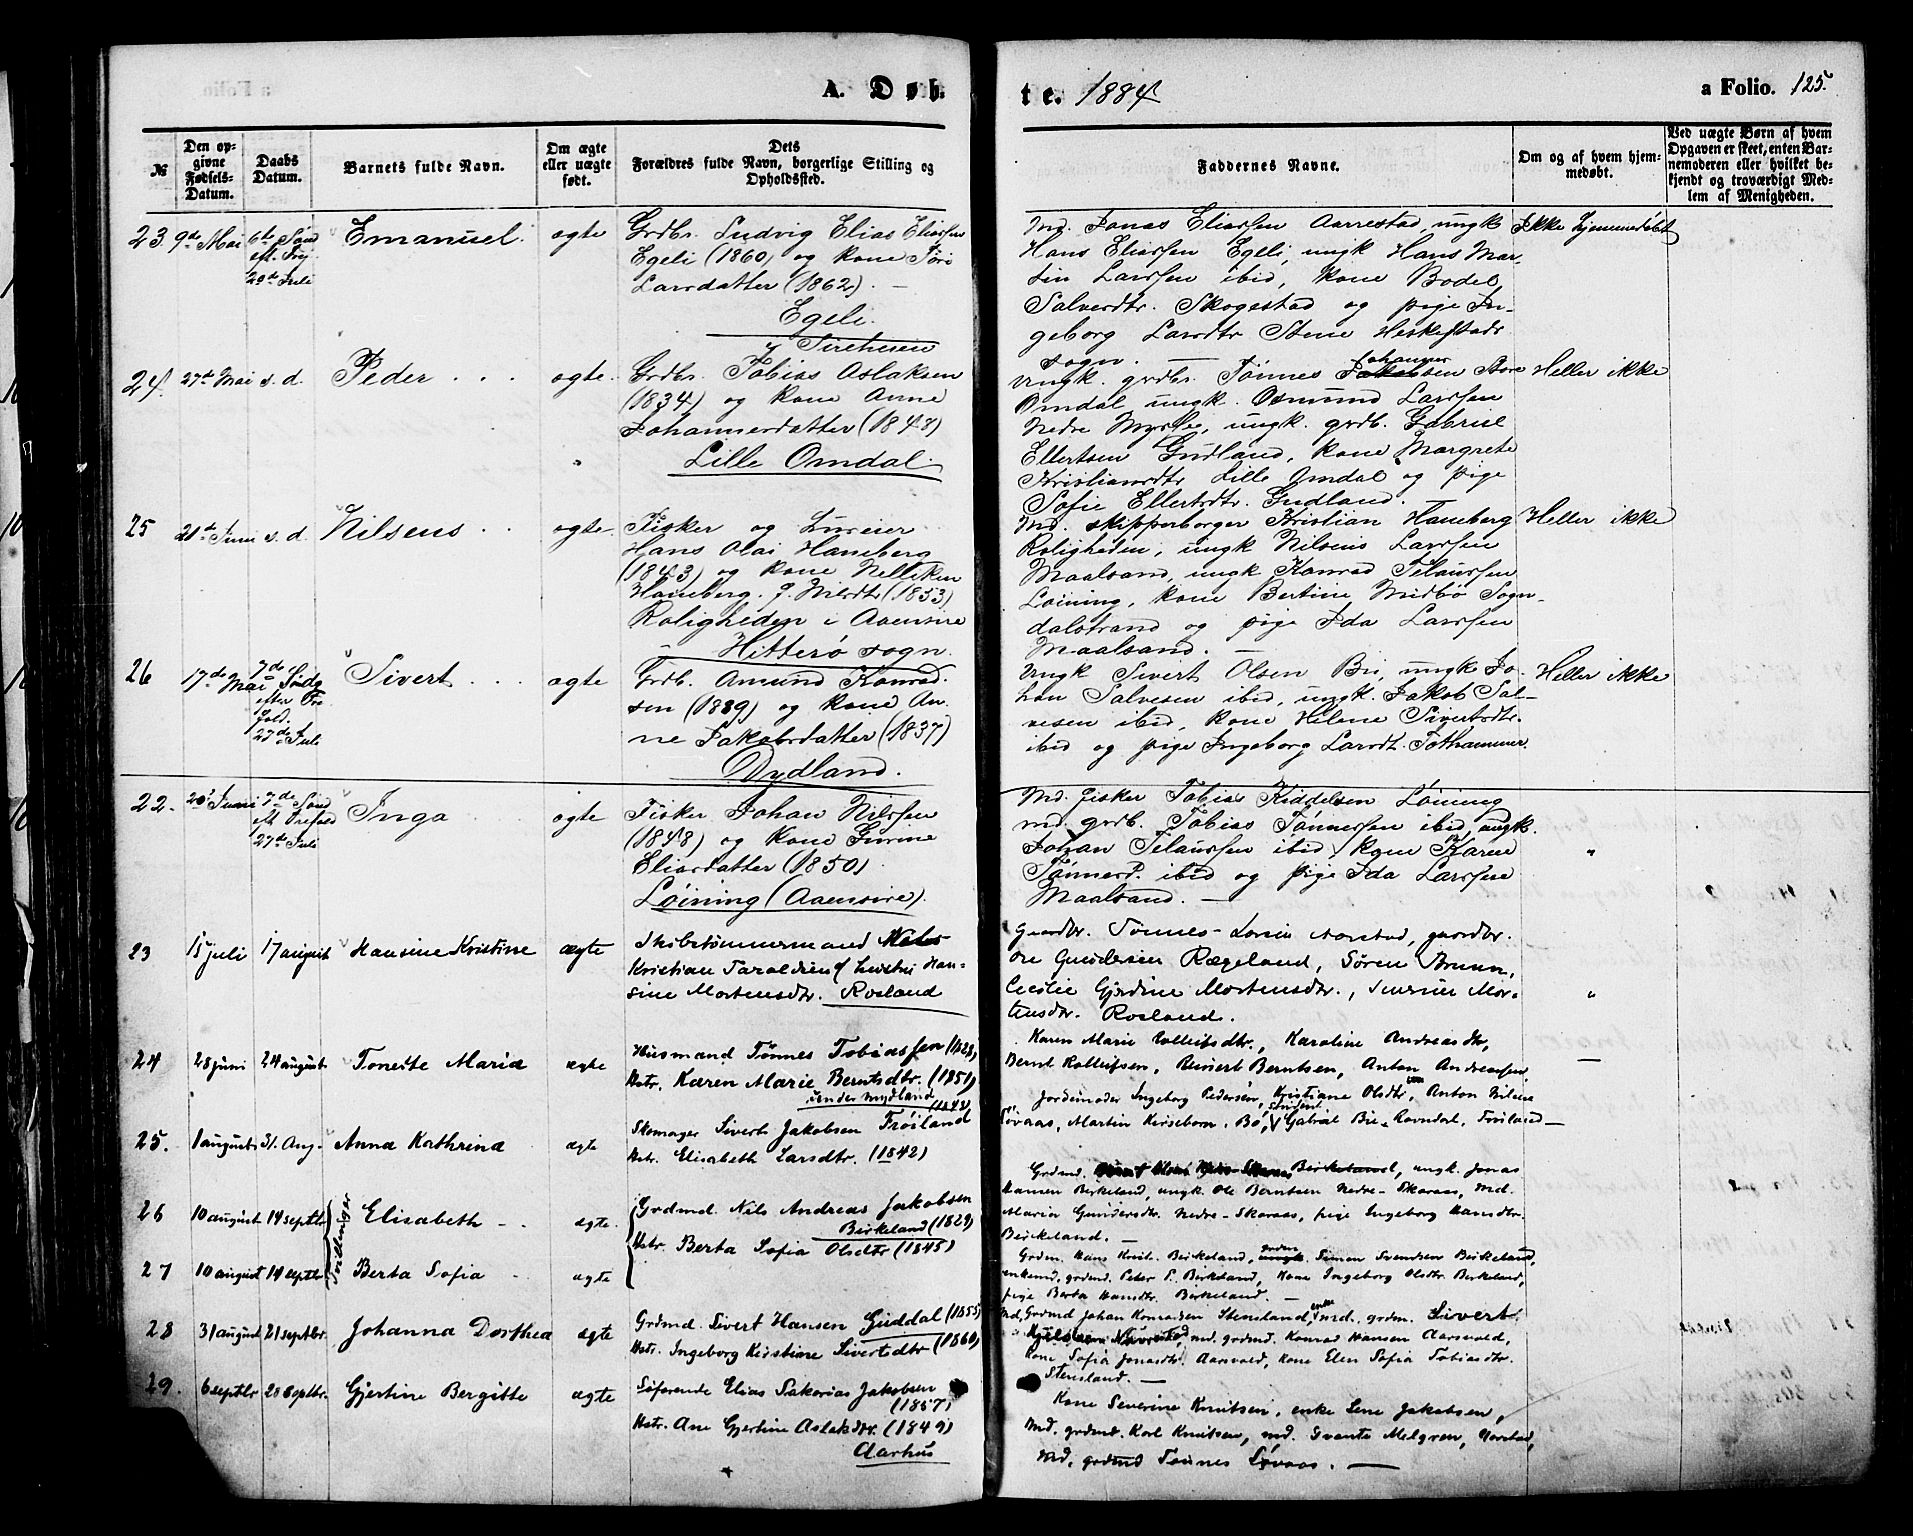 A. Døb-
te. 1884
a Folio. 125.
№
Den op-
givne
Fødsels-
Datum.
Daabs
Datum.
Barnets fulde Navn.
Om ægte
eller uægte
født.
Dets
Forældres fulde Navn, borgerlige Stilling og
Opholdssted.
Faddernes Navne.
Om og af hvem hjem-
medøbt.
Ved uægte Børn af hvem
Opgaven er skeet, enten Bar-
nemoderen eller hvilket be-
kjendt og troværdigt Med-
lem af Menigheden.
23. 9de Mai 6te Sønd
eft. Trf.
20de Juli
Emanuel. ægte
Grdbr. Ludvig Elias Eliassen
Egeli (1860) og kone Siri
Larsdatter (1862). —
Egeli.
Md. Jonas Eliassen Aarrestad, ungk
Hans Eliassen Egeli, ungk Hans Mar-
tin Larssen ibid, kone Bodel
Salvesdtr. Skogestad og pige In-
geborg Larsdtr Stene Heskestads
sogn. —
Ikke hjemmedøbt
24. 27de Mai s. d. Peder . . . ægte.
Grdbr. Tobias Aslaksen
(1834) og kone Anne
Johannesdatter (1848)
Lille Omdal.
Ungk. grdbr. Tønnes Johannessen Store
Omdal ungk. Osmund Larssen
Nedre Mysse, ungk. grdb. Gabriel
Ellertsen Gudland, kone Margrete
Kristiansdtr Lille Omdal og pige
Sofie Ellertsdtr. Gudland.
Heller ikke
25 21de Juni s. d. Nilsens . . ægte.
Fisker og
Hans Olai Haneberg
(1843) og kone Nelliken
Haneberg. f. Nilsdtr (1853)
Roligheden i Aaensire
Hitterø sogn.
Md. skipperborger Kristian Haneberg
Roligheden, ungk Nilsens Larssen
Maalsand, ungk Konrad Telaussen
Løining, kone Bertine Midbø Sogn-
dalstrand og pige Ida Larssen
Maalsand. —
Heller ikke
26 17de Mai 7de Søndg
efter Tre
fold.
27de Juli
Sivert . . . ægte
Grdb. Amund Konrad-
sen (1839) og kone An-
ne Jakobsdatter (1837)
Dydland.
Ungk Sivert Olsen Bu, ungk Jo-
han Salvesen ibid, ungk. Jakob Sal-
vesen ibid, kone Helene Sivertsdtr.
ibid og pige Ingeborg Larsdt. Tothammer.
Heller ikke
22. 20de Juni 7de Sønd
eft Trefold
27de Juli
Inga ægte
Fisker Johan Nilssen
(1848) og kone Gurine
Eliasdatter (1850)
Løining (Aaensire).
Md. fisker Tobias Kiddelsen Løining
md. grdb. Tobias Tønnessen ibid, ungk.
Johan Telaussen ibid, kone Karen
Tønnesd. ibid og pige Ida Larssen
Maalsand. —
"
23 15 juli 17 august Hansine Kristine ægte
Skibstømmermand
Kristian Taraldsen og hustru Han-
sine Mortensdtr. Rosland
Gaardbr. Tønnes Aarstad, gaardbr.
Ole Gundersen Rægeland, Søren Bruun,
Cecilie Gjørdine Mortensdtr., Mor-
tensdtr. Rosland.
"
24 28 juni 24 august Tonette Maria ægte
Husmand Tønnes Tobiassen (1828)
Hstr. Karen Marie Berntsdtr. (1851)
under Mydland
Karen Marie Rolleifsdtr., Karoline Andreasdtr,
Bernt Rolleifsen, Reinert Berntsen, Anton Andreassen.
—
25. 1 august 31. Aug. Anna Kathrina ægte
(1848)
Skomager Sivert Jakobsen Frøiland
Hstr. Elisabeth Larsdtr. (1842)
Jordemoder Ingeborg Pedersen, Kristiane Olsdtr, Anton Nilsen
Løvaas, Martin Kirseborn. Bø, student Gabriel Bie Ravndal, Frøiland —
26 10 august 14 septbr Tvillinger Elisabeth - . ægte.
Grdmd. Nils Andreas Jakobsen
Birkeland (1829)
Hstr. Berta Sofia Olsdtr (1845)
Grdmd. Birkeland, ungk. Jonas
Hansen Birkeland, ungk. Ole Berntsen Nedre-Skaraas, Md.
Maria Gundersdtr. Nedre-Skaraas, pige Ingeborg Hansdtr.
Birkeland. —
27 10 august 14 septbr Berta Sofia . ægte
Grdm. Hans Krist. Birkeland, grdm Simon Svendsen Birkeland,
enkemd. grdmd. Peter P. Birkeland, Kone Ingeborg Olsdtr. Birkeland,
pige Berta Hansdtr. Birkeland. —
28 31 august 21 septbr. Johanna Dorthea ægte
Grdmd. Sivert Hansen Guddal (1855)
Hstr. Ingeborg Kirstine Sivertsdtr (1860)
Md, Grdmd Johan Konradsen Stensland, md. grdm. Sivert
md. grdmd. Konrad Hansen Aarsvold,
Kone Sofia Jonasdtr. Aarsvold, Kone Elen Sofia Tobiasdtr.
Stensland. —
29. 6 septbr 28 septbr. Gjertine Bergitte ægte
Søfarende Elias Sakarias Jakobsen
(1857)
Hstr. Ane Gjertine Aslaksdtr. (1849)
Aarhus
Kone Severine Knutsen, enke Lene Jakobsen,
Md. grdmd. Karl Knutsen, md. Svante Melgren, Aarstad,
Md, grdmd Tønnes Løvaas. —